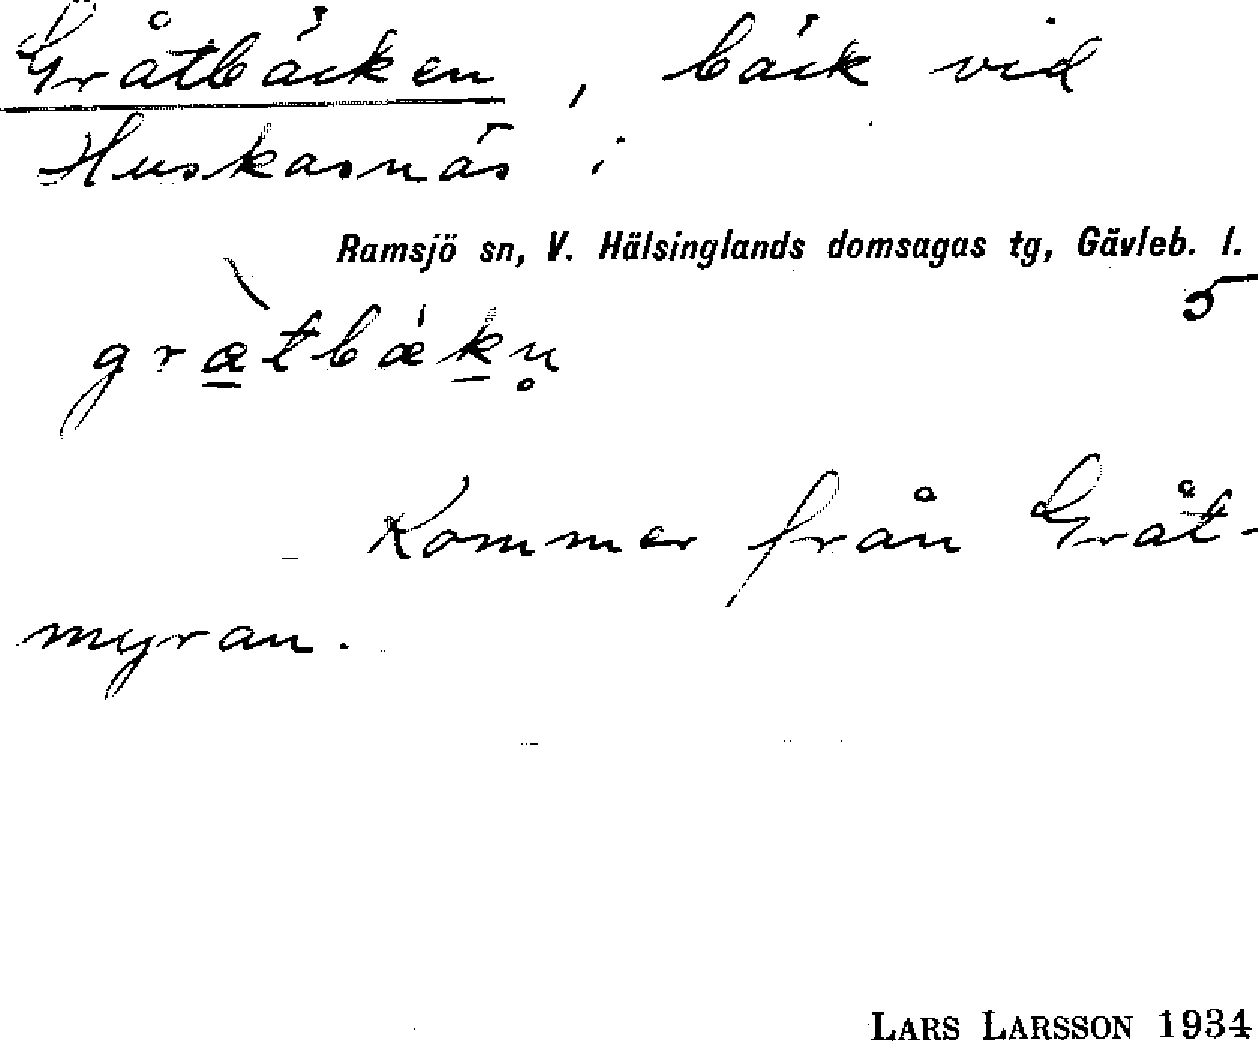 Gråtbäcken, bäck vid
Huskasnäs i
Ramsjö sn, V. Hälsinglands domsagas tg, Gävleb. l.
5
græ̲̀tbæ´k̲n̥
Kommer från Gråt-
myran.
LARS LARSSON 1934